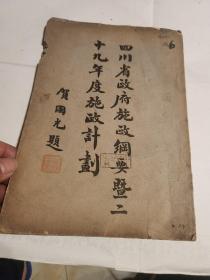 四川省政府施政綱要暨二
十九年度施政計劃
賀國光題
6